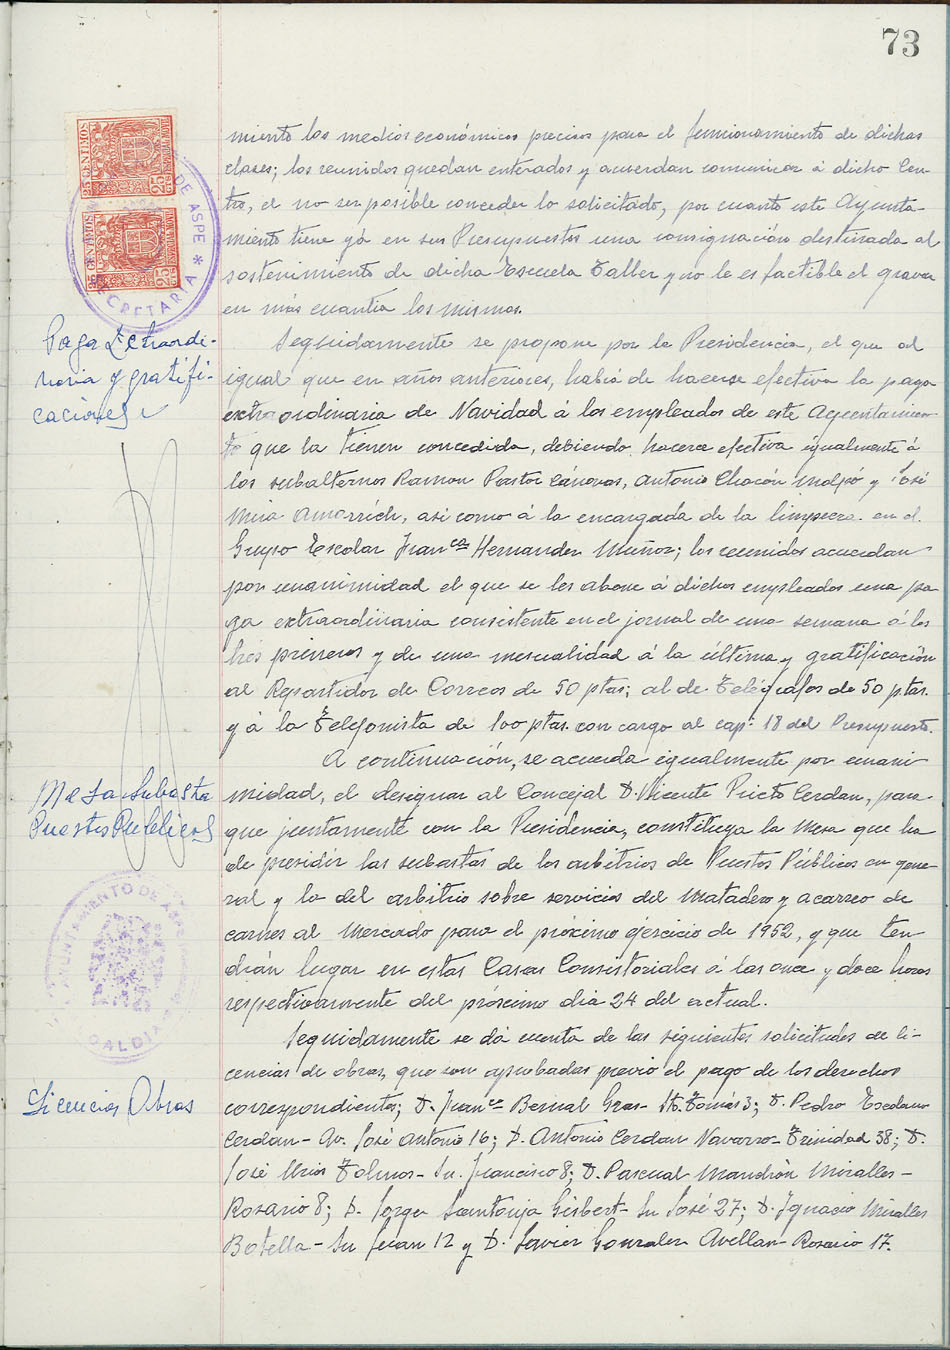 73
miento los medios económicos precisos para el funcionamiento de dichas
clases; los reunidos quedan enterados y acuerdan comunicar á dicho Cen-
tro, el no ser posible conceder lo solicitado, por cuanto este Ayunta-
miento tiene yá en sus Presupuestos una consignación destinada al
sostenimiento de dicha Escuela Taller y no le es factible el gravar
en más cuantia los mismos.
Paga Extraordi-
naria y gratifi-
caciones
Seguidamente se propone por la Presidencia, el que al
igual que en años anteriores, habiá de hacerse efectiva la paga
extraordinaria de Navidad á los empleados de este Ayuntamien-
to que la tienen concedida, debiendo hacerse efectiva igualmente á
los subalternos Ramon Pastor Cánovas, Antonio Chacón y José
Mira Amorrich, asi como á la encargada de la limpieza en el
Grupo Escolar Franca Hernandez Muñoz; los reunidos acuerdan
por unanimidad el que se les abone á dichos empleados una pa
ga extraordinaria consistente en el jornal de una semana á los
tres primeros y de una mensualidad á la última y gratificación
al Repartidor de Correos de 50 ptas; al de Telégrafos de 50 ptas.
y á la Telefonista de 100 ptas. con cargo al cap: 18 del Presupuesto.
Mesa Subasta
Puestos Publicos
A continuación, se acuerda igualmente por unani
midad, el designar al Concejal D. Vicente Prieto Cerdan, para
que juntamente con la Presidencia, constituya la Mesa que ha
de presidir las subastas de los arbitrios de Puestos Públicos en gene-
ral y la del arbitrio sobre servicios del Matadero y acarreo de
carnes al Mercado para el próximo ejercicio de 1952, y que ten-
drán lugar en estas Casas Consistoriales á las once y doce horas
respectivamente del próximo dia 24 del actual.
Licencias Obras
Seguidamente se dá cuenta de las siguientes solicitudes de li-
cencias de obras, que son aprobadas previo el pago de los derechos
correspondientes; D. Franco Bernal Gras- Sto. Tomás 3; D. Pedro Escolano
Cerdan- Av. José Antonio 16; D. Antonio Cerdan Navarro- Trinidad 38; D.
José Urios - Sn. Francisco 8; D. Pascual Mandrón Miralles-
Rosario 8; D. Jorge Santonja Gisbert- Sn José 27; D. Ignacio Miralles
Botella- Sn Juan 12 y D. Javier Gonzalez Avellan- Rosario 17.
25 CENTIMOS
25
25 CENTIMOS
25
DE ASPE * SECRETARIA
AYUNTAMIENTO DE ASPE
ALCALDIA